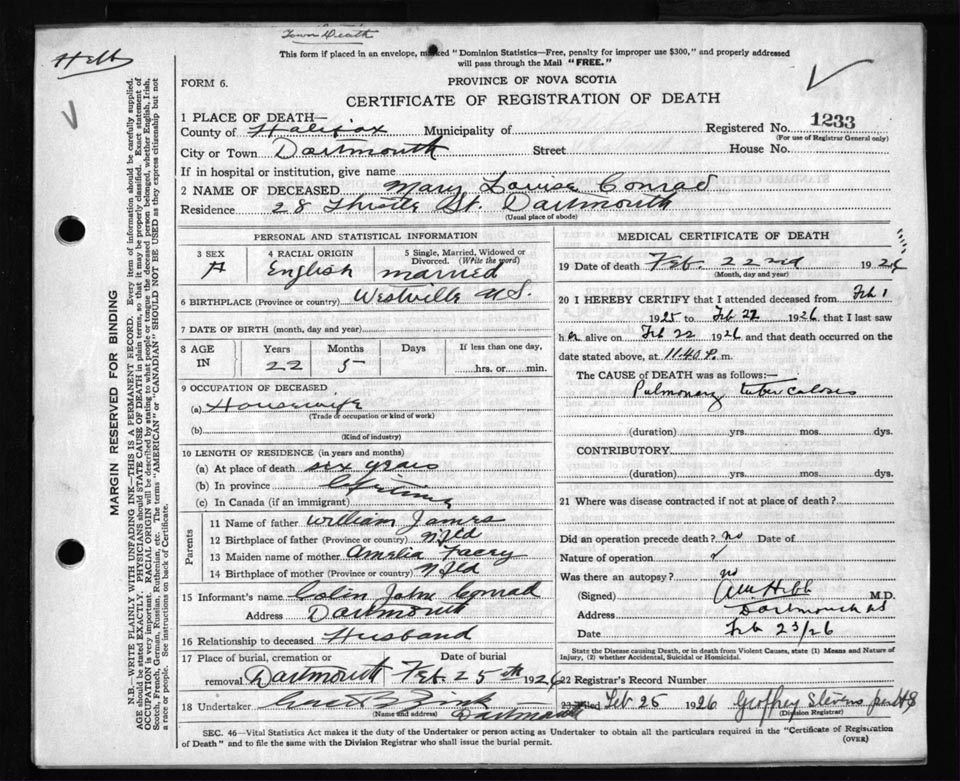 Town Death
Hebb
This form if placed in an envelope, marked "Dominion Statistics—Free, penalty for improper use $300," and properly addressed
will pass through the Mail "FREE."
FORM 6.
PROVINCE OF NOVA SCOTIA
CERTIFICATE OF REGISTRATION OF DEATH
1 PLACE OF DEATH—
County of Halifax Municipality of Registered No. 1233
(For use of Registrar General only)
City or Town Dartmouth Street House No.
If in hospital or institution, give name
2 NAME OF DECEASED Mary Louise Conrad
Residence 28 Thistle St. Dartmouth
(Usual place of abode)
PERSONAL AND STATISTICAL INFORMATION
3 SEX
4 RACIAL ORIGIN
English
5 Single, Married, Widowed or
Divorced. (Write the word)
married
6 BIRTHPLACE (Province or country) Westville N.S.
7 DATE OF BIRTH (month, day and year)
8 AGE IN
Years 22
Months 5
Days
If less than one day,
hrs. or min.
9 OCCUPATION OF DECEASED
(a) Housewife
(Trade or occupation or kind of work)
(b)
(Kind of industry)
10 LENGTH OF RESIDENCE (in years and months)
(a) At place of death six years
(b) In province Lifetime
(c) In Canada (if an immigrant)
Parents
11 Name of father William James
12 Birthplace of father (Province or country) Nfld
13 Maiden name of mother Amelia
14 Birthplace of mother (Province or country) Nfld
15 Informant's name Colin John Conrad
Address Dartmouth
16 Relationship to deceased Husband
17 Place of burial, cremation or Date of burial
removal Dartmouth Feb. 25th 1926
18 Undertaker
(Name and address) Dartmouth
MEDICAL CERTIFICATE OF DEATH
19 Date of death Feb. 22nd 1926
(Month, day and year)
20 I HEREBY CERTIFY that I attended deceased from Feb 1
1925 to Feb 22 1926 that I last saw
her alive on Feb 22 1926 and that death occurred on the
date stated above, at 11.40 P. m.
The CAUSE of DEATH was as follows:—
Pulmonary tuberculosis
(duration) yrs. mos. dys.
CONTRIBUTORY.
(duration) yrs. mos. dys.
21 Where was disease contracted if not at place of death?
Did an operation precede death? no Date of
Nature of operation
Was there an autopsy? no
(Signed) Hebb M.D.
Address Dartmouth NS
Date Feb 23/26
State the Disease causing Death, or in death from Violent Causes, state (1) Means and Nature of
Injury, (2) whether Accidental, Suicidal or Homicidal.
22 Registrar's Record Number
23 Filed Feb 25 1926 Geoffrey Stevens
(Division Registrar)
SEC. 46—Vital Statistics Act makes it the duty of the Undertaker or person acting as Undertaker to obtain all the particulars required in the "Certificate of Registration
of Death" and to file the same with the Division Registrar who shall issue the burial permit.
(OVER)
MARGIN RESERVED FOR BINDING
N.B.—WRITE PLAINLY WITH UNFADING INK—THIS IS A PERMANENT RECORD. Every item of information should be carefully supplied.
AGE should be stated EXACTLY. PHYSICIANS should STATE CAUSE OF DEATH in plain terms, so that it may be properly classified. Exact statement of
OCCUPATION is very important. RACIAL ORIGIN will be described by stating to what people or tongue the deceased person belonged, whether English, Irish,
Scotch, French, German, Russian, Ruthenian, etc. The terms "AMERICAN" or "CANADIAN" SHOULD NOT BE USED as they express citizenship but not
a race or people. See instructions on back of Certificate.